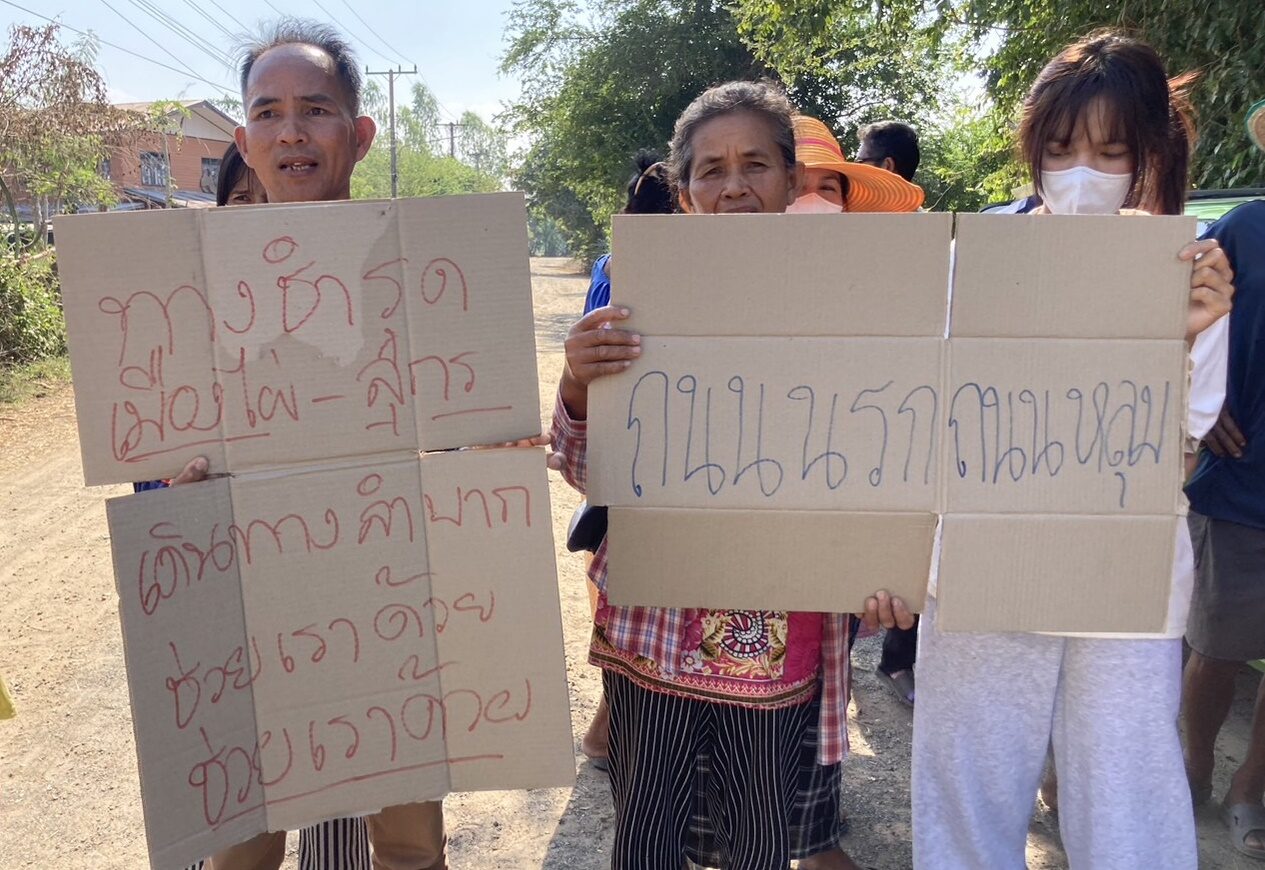 ทางชำรุด
เมืองไผ่-สุกร
เดินทางลำบาก
ช่วยเราด้วย
ช่วยเราด้วย
ถนนนรกถนนหลุม